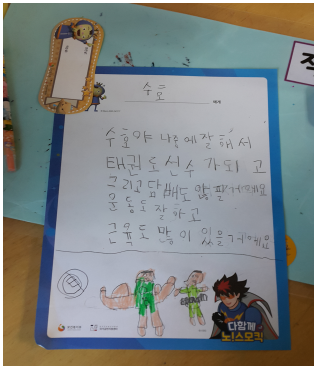 수호
에게
수호야 나중에 잘해서
태권도선수가되고
그리고 담배도 않필게해요
운동도 잘하고
근육도 많이 있을게해요
다함께
노!스모킹